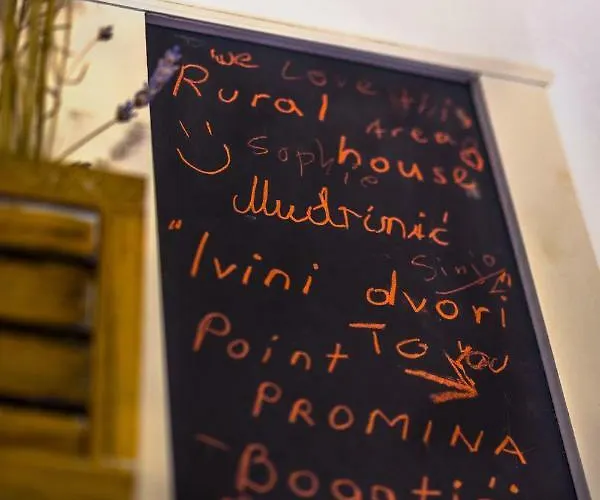 we Love this
Rural Area
Sophie house
Mudrinić
"Ivini dvori"
Sinjo
Point To You
PROMINA